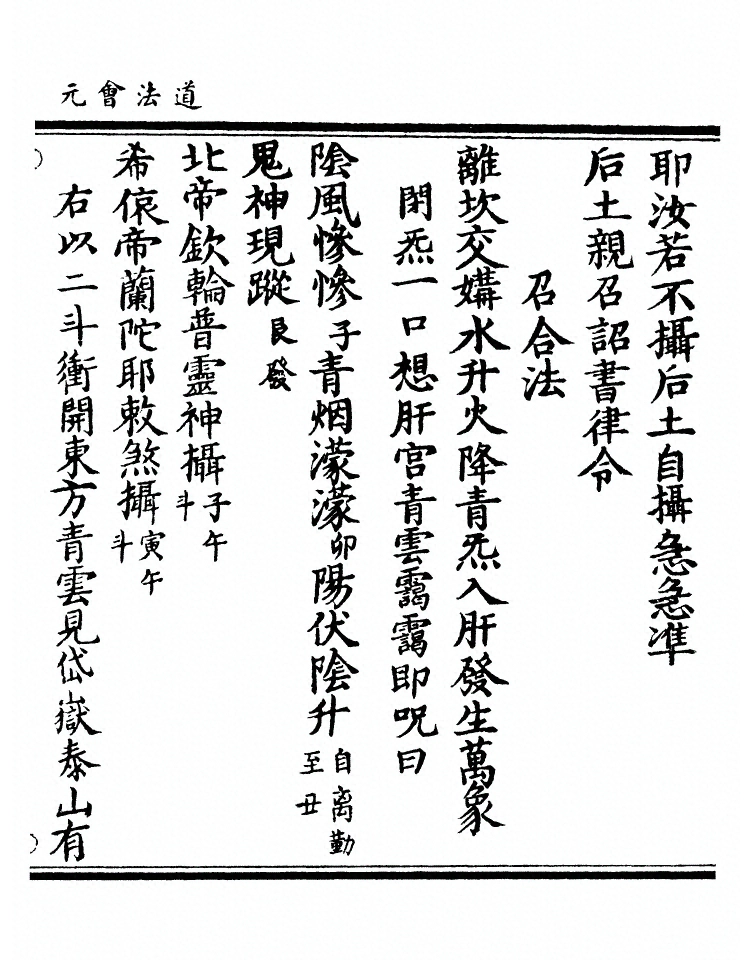 道法會元
耶汝若不攝后土自攝急急準
后土親召詔書律令
召合法
離坎交媾水升火降青炁入肝發生萬象
閉炁一口想肝宮青雲靄靄即呪曰
陰風慘慘子青烟濛濛卯陽伏陰升自离勤至丑
鬼神現蹤艮發
北帝欽輪普靈神攝子午斗
希㑋帝蘭陀耶敕煞攝寅午斗
右以二斗衝開東方青雲見岱嶽泰山有